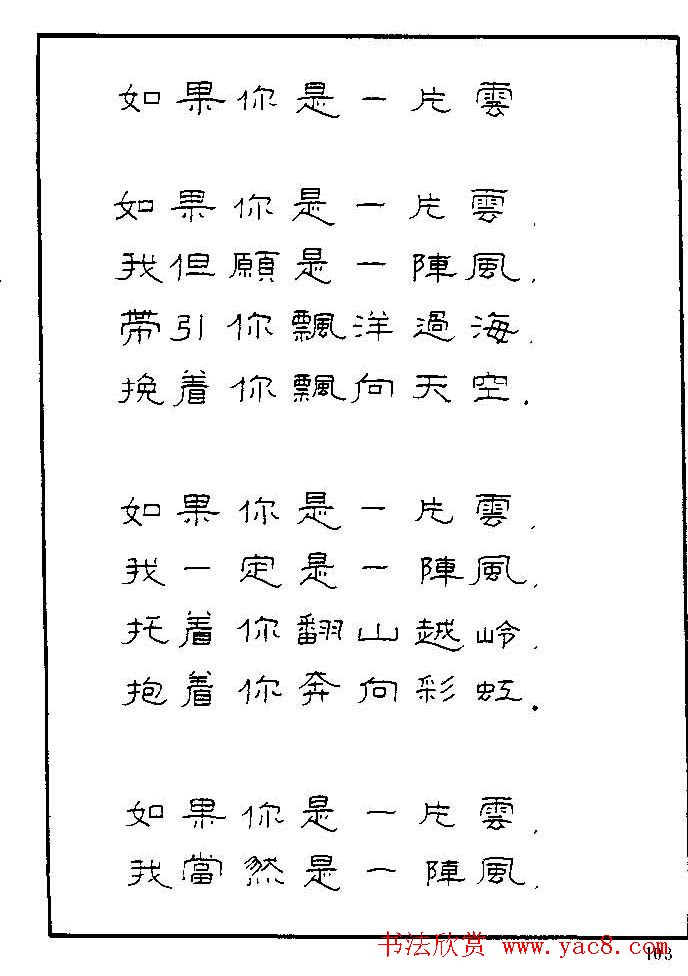 如果你是一片雲
如果你是一片雲,
我但願是一陣風,
帶引你飄洋過海,
挽着你飄向天空.
如果你是一片雲,
我一定是一陣風,
托着你翻山越岭,
抱着你奔向彩虹.
如果你是一片雲,
我當然是一陣風,
书法欣赏 www.yac8.com
103